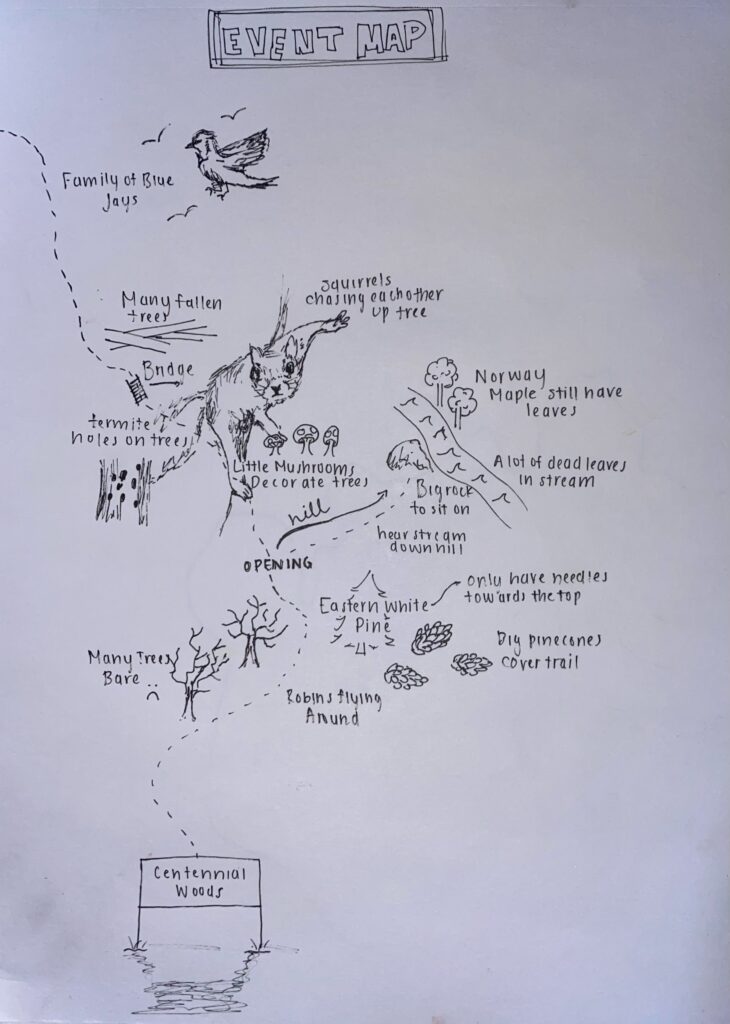 EVENT MAP
Family of Blue
Jays
Many fallen
trees
squirrels
chasing eachother
up tree
Bridge
Norway
Maple still have
leaves
termite
holes on trees
Little Mushrooms
Decorate trees
A lot of dead leaves
in stream
Big rock
to sit on
hill
hear stream
down hill
OPENING
Eastern White
Pine
only have needles
towards the top
Many Trees
Bare
Big pinecones
cover trail
Robins flying
Around
Centennial
Woods